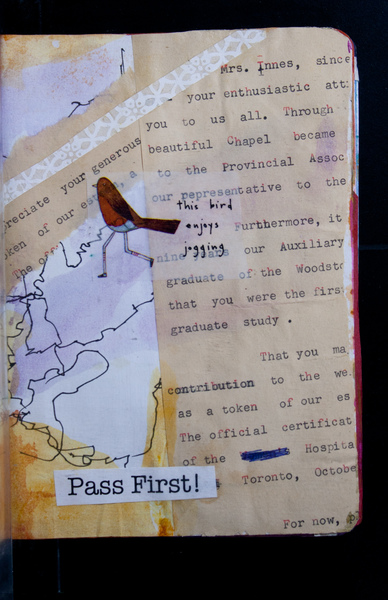 Mrs. Innes, since
your enthusiastic
you to us all. Through
beautiful Chapel became
a to the Provincial Assoc
our representative to the
Furthermore, it
nine years our Auxiliary
graduate of the Woodsto
that you were the firs
graduate study.
That you ma
contribution to the we
as a token of our es
The official certificat
of the Hospita
Toronto, Octobe
For now,
preciate your generous
oken of our es
The off
this bird
enjoys
jogging
Pass First!